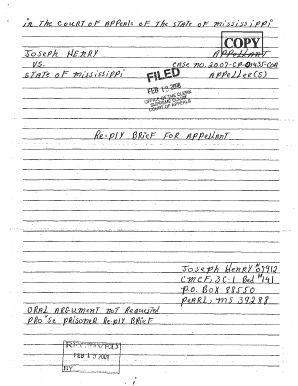 in THE COURT OF APPEALS OF THE STATE OF MISSISSIPPI
COPY
JOSEPH HENRY APPELLANT
VS. CASE NO. 2007-CP-01435-COA
STATE OF MISSISSIPPI APPELLEE(S)
FILED
FEB 19 2008
OFFICE OF THE CLERK
SUPREME COURT
COURT OF APPEALS
Re-ply BRIEF FOR APPELLANT
JOSEPH HENRY #
CMCF, 3C-1 Bed #141
P.O. BOX 88550
PEARL, MS 39288
ORAL ARGUMENT NOT Requested
PRO'SE PRISONER Re-ply BRIEF
RECEIVED
FEB 19 2008
BY:
i